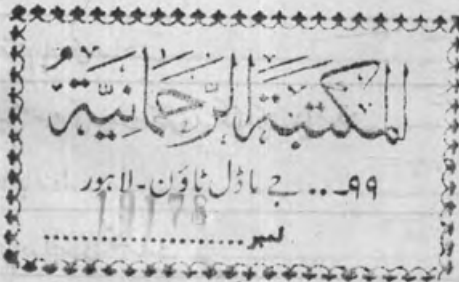 المكتبة الرحمانية
۹۹۔.. جے ماڈل ٹاؤن۔لاہور
نمبر....................